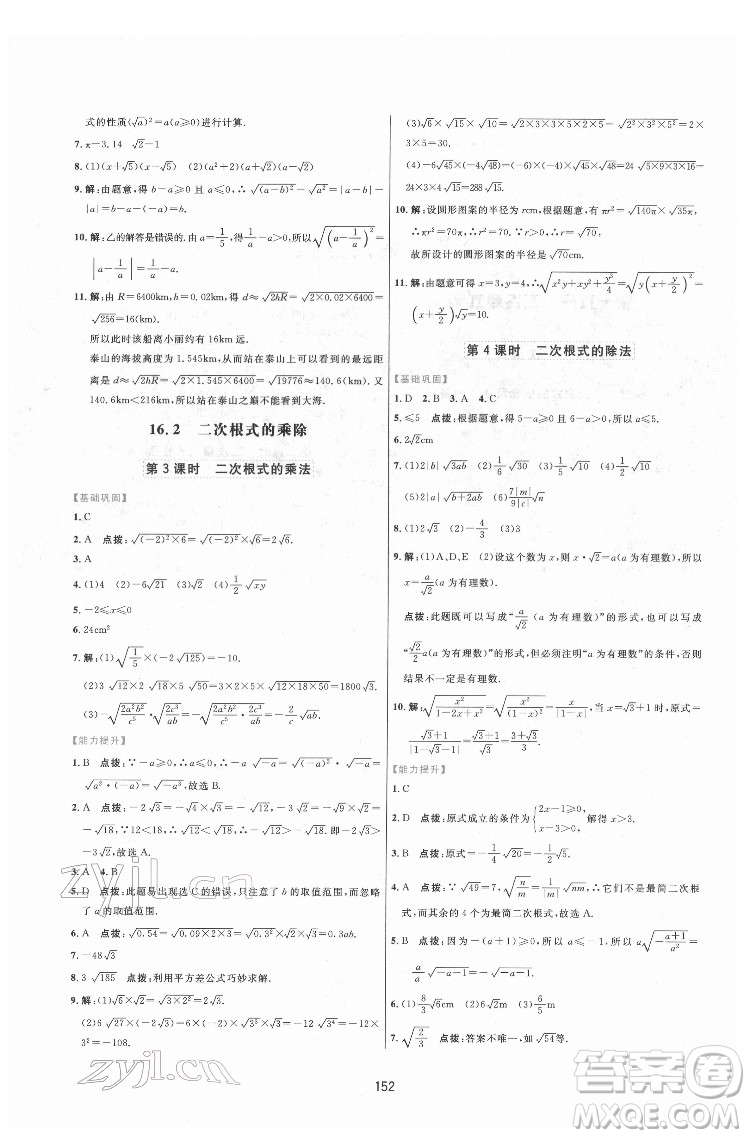 式的性质(√a)²=a(a≥0)进行计算.
7. π-3.14　√2-1
8. (1)(x+√5)(x-√5)　(2)(a²+2)(a+√2)(a-√2)
9. 解:由题意,得 b-a≥0 且 a<0,∴√(b-a)²-√a²=|a-b|-
|a|=b-a+a=b.
10. 解:乙的解答是错误的.由 a=1/5,得 1/a=5,∴a-1/a<0,所以√(a-1/a)²=
|a-1/a|=1/a-a.
11. 解:由 R=6400km,h=0.02km,得 d≈√2hR=√2×0.02×6400=
√256=16(km).
所以此时该船离小丽约有 16km 远.
泰山的海拔高度为 1.545km,则站在泰山上可以看到的最远距
离 d≈√2hR=√2×1.545×6400=√19776≈140.6(km),
140.6km<216km,所以站在泰山之巅不能看到大海.
16.2　二次根式的乘除
第3课时　二次根式的乘法
【基础巩固】
1. C
2. A　点拨:√(-2)²×6=√(-2)²×√6=2√6.
3. A
4. (1)4　(2)-6√21　(3)6　(4)1/2√xy
5. -2≤x≤0
6. 24cm²
7. 解:(1)√1/5×(-2√125)=-10.
(2)3√12×2√18×5√24=3×2×5×√12×18×24=1800√3.
(3)-√2a²b²/c⁵·√2c³/ab=-√2a²b²/c⁵·2c³/ab=-2/c√ab.
【能力提升】
1. B　点拨:∵-a≥0,∴a≤0,∴-a√-a=√(-a)²·√-a=
√a²·√-a=√-a³,故选 B.
2. A　点拨:-2√3=-√4×√3=-√12,-3√2=-√9×√2=
-√18,∵12<18,∴√12<√18,∴-√12>-√18.即-2√3>
-3√2,故选 A.
3. A　4. B
5. D　点拨:此题易出现选 C 的错误,只关注了 b 的取值范围,而忽略
了 a 的取值范围.
6. A　点拨:√0.54=√0.09×2×3=√0.3²×√2×√3=0.3ab.
7. -48√3
8. 3√185　点拨:利用平方差公式巧妙求解.
9. 解:(1)√6×√2=√3×2²=√3×√2²=2√3.
(2)6√27×(-2√3)=6×(-2)×√27×3=-12×
3²=-108.
(3)√6×√15×√10=√2×3×3×5×2×5=√2²×3²×5²=2
×3×5=30.
(4)-6√45×(-4√48)=(-6)×(-4)×√45×48=24×√5×9×3×16=
24×3×4×√15=288√15.
10. 解:设圆形图案的半径为 rcm,根据题意,得 πr²=√140π×√35π,
∴πr²=70π,∴r²=70,∴r=√70,
故所设计的圆形图案的半径为√70cm.
11. 解:由题意可得 x=3,y=4,∴√x²y²+xy³+y⁴/4=√y²(x+y/2)²=
(x+y/2)√y²=10.
第4课时　二次根式的除法
【基础巩固】
1. D　2. B　3. A　4. C
5. ≤5　点拨:根据题意,得 5-a≥0,所以 a≤5.
6. 2√2cm
7. (1)2|b|√3ab　(2)1/6√30　(3)1/2√10　(4)√2/4
(5)2|a|√b+2ab　(6)7|m|/9|c|√n
8. (1)2√3　(2)-4/3　(3)3
9. 解:(1)A、D、E　(2)设这个数为 x,则 x·√2=a(a 为有理数),所以
x=a/√2(a 为有理数).
点拨:此题既可以写成“a/√2(a 为有理数)”的形式,也可以写成
“√2/2a(a 为有理数)”的形式,但需要注意“a 为有理数”,否则
结果不一定是有理数.
10. 解:√x²/1-2x+x²=√x²/(1-x)²=|x|/|1-x|,当 x=√3+1 时,原式=
√3+1/|1-√3-1|=√3+1/√3=3+√3/3.
【能力提升】
1. C
2. D　点拨:原式成立的条件为{2x-1≥0, x-3>0, 解得 x>3.
3. B　点拨:原式=1/4√20=1/2√5.
4. A　点拨:∵√49=7,√n/m=1/|m|√nm,∴√49和√n/m不是最简二次根
式,而其余的 4 个为最简二次根式,故选 A.
5. B　点拨:因为-(a+1)≥0,所以 a≤-1,a√-a+1/a²=
a/-a√-a-1=-√-a-1.
6. (1)8/3√6cm　(2)4√6cm　(3)√2cm
7. √2/3　点拨:答案不唯一,如√54等.
152
zyjl.cn
zyjl.cn
答案圈
MXQE.COM